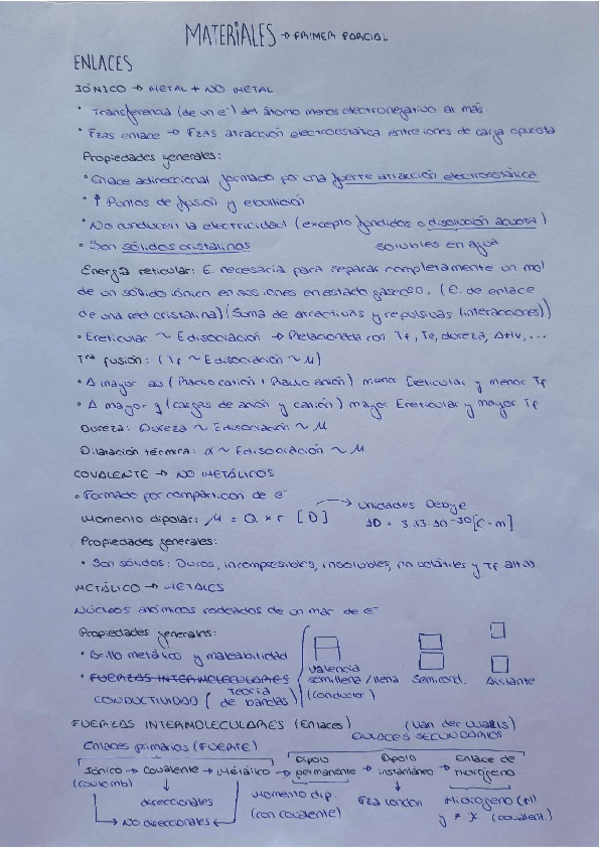 MATERIALES → PRIMER PARCIAL
ENLACES
IÓNICO → METAL + NO METAL
• Transferencia (de un e⁻) del átomo menos electronegativo al más.
• Fzas enlace → Fzas atracción electroestática entre iones de carga opuesta
Propiedades generales:
• Enlace adireccional formado por una fuerte atracción electroestática
• ↑ Puntos de fusión y ebullición
• No conducen la electricidad (excepto fundidos o disolución acuosa)
• Son sólidos cristalinos solubles en agua
Energía reticular: E. necesaria para separar completamente un mol
de un sólido iónico en sus iones en estado gaseoso. (E. de enlace
de una red cristalina) (Suma de atractivas y repulsivas (interacciones))
• Ereticular ~ Edisociación → Relacionada con Tf, Te, dureza, ΔHv, ...
Tra fusión: (Tf ~ Edisociación ~ M)
• A mayor (Radio catión + Radio anión) menor Ereticular y menor Tf
• A mayor q (cargas de anión y catión) mayor Ereticular y mayor Tf
Dureza: Dureza ~ Edisociación ~ M
Dilatación térmica: α ~ Edisociación ~ M
COVALENTE → NO METÁLICOS
• Formado por compartición de e⁻
Momento dipolar: M = Q × r [D] → Unidades Debye
1D = 3.33·10⁻³⁰ [C·m]
Propiedades generales:
• Son sólidos: Duros, incompresibles, insolubles, no volátiles y Tf altas
METÁLICO → METALES
Núcleos atómicos rodeados de un mar de e⁻
Propiedades generales:
• Brillo metálico y maleabilidad
• FUERZAS INTERMOLECULARES
CONDUCTIVIDAD (Teoría de bandas)
Valencia
semillena/llena
(conductor)
Semicond.
Aislante
FUERZAS INTERMOLECULARES (Enlaces)
(Van der Waals)
ENLACES SECUNDARIOS
Enlaces primarios (FUERTE)
Iónico → Covalente → Metálico → Dipolo permanente → Dipolo instantáneo → Enlace de hidrógeno
(coulomb)
direccionales
→ No direccionales ←
Momento dip.
(con covalente)
Fza London
Hidrógeno (H)
y ≠ X (covalent.)